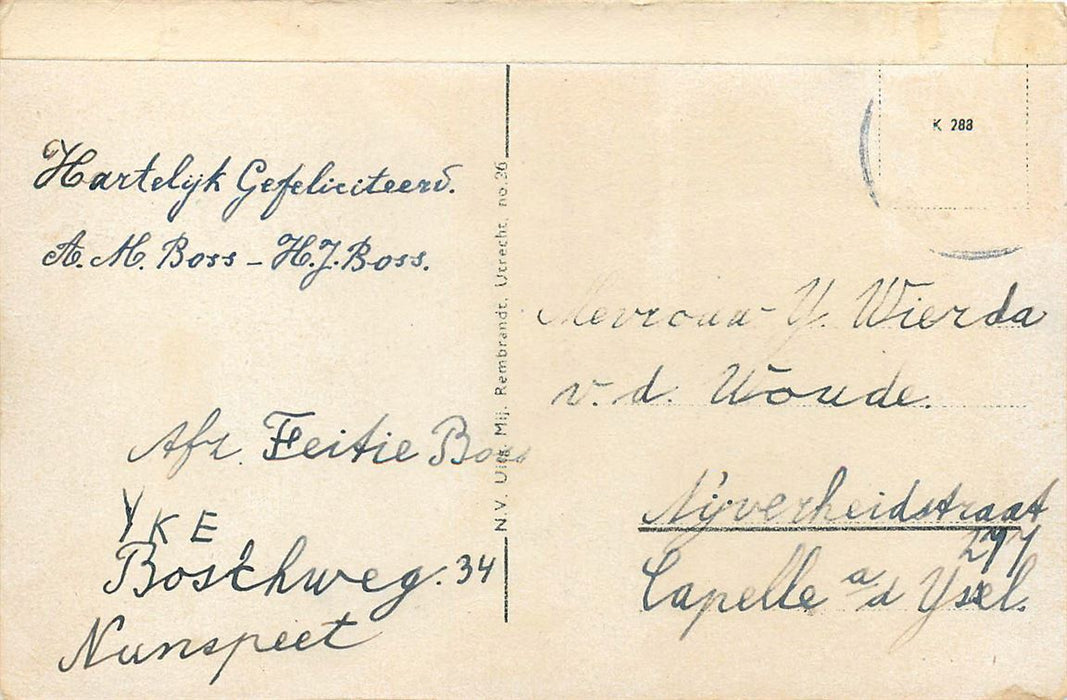 Hartelijk Gefeliciteerd.
A. M. Boss – H. J. Boss.
Afz. Feitie Boss
YKE
Boschweg. 34
Nunspeet
N.V. Uitg. Mij. Rembrandt, Utrecht, no. 26
K 288
Mevrouw Y. Wierda
v. d. Woude.
Nijverheidstraat
Capelle a/d Ysel.